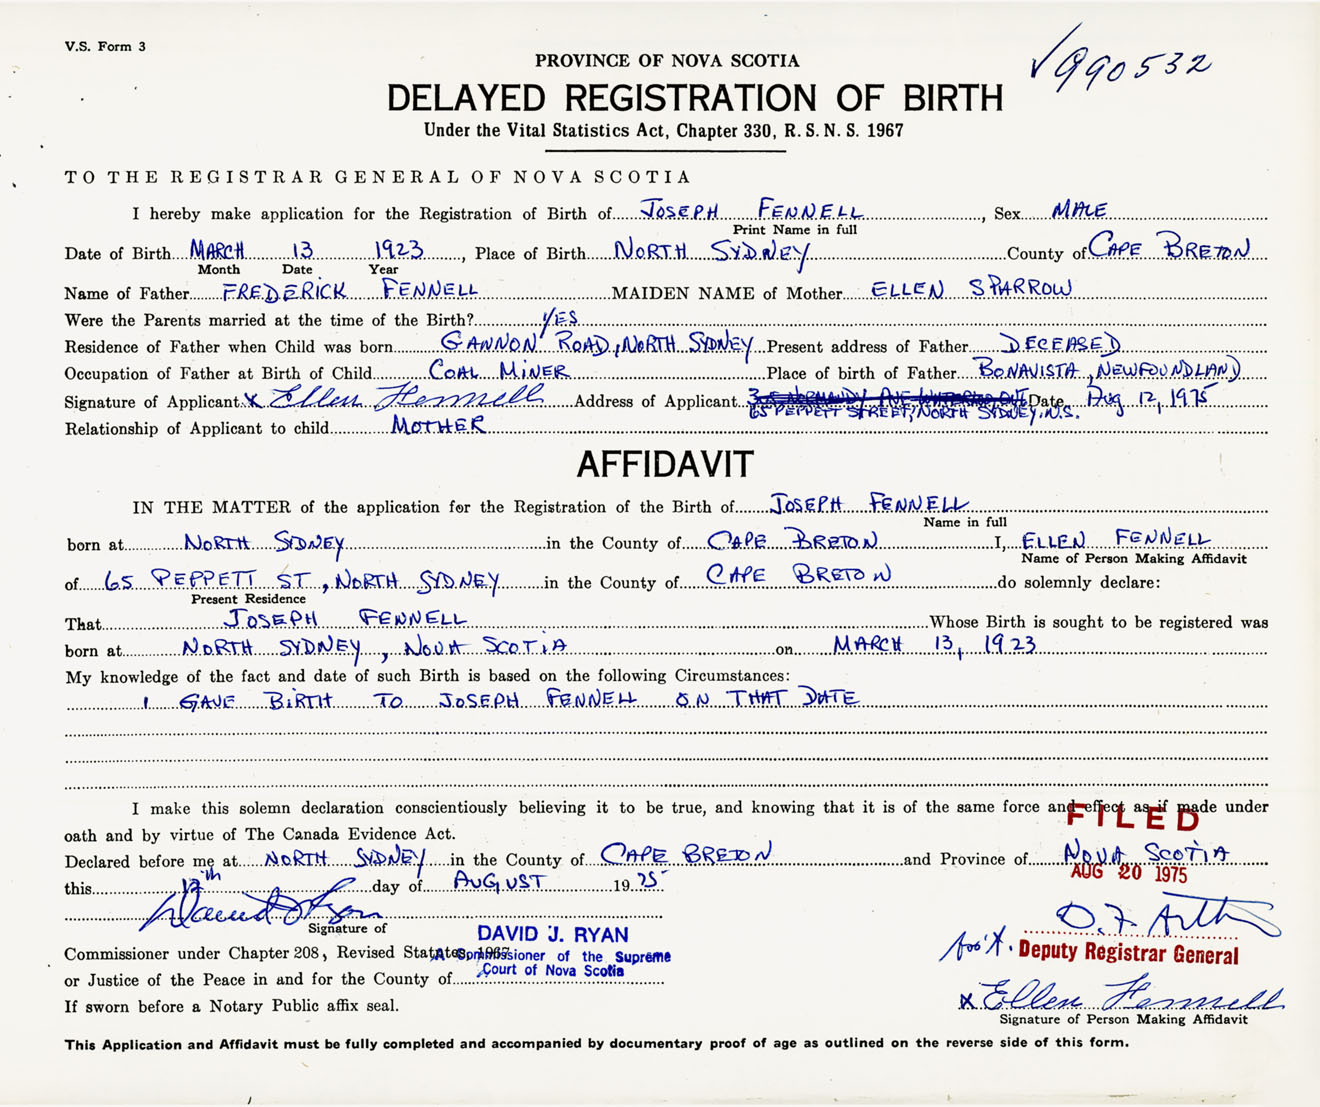 V.S. Form 3
√990532
PROVINCE OF NOVA SCOTIA
DELAYED REGISTRATION OF BIRTH
Under the Vital Statistics Act, Chapter 330, R.S.N.S. 1967
TO THE REGISTRAR GENERAL OF NOVA SCOTIA
I hereby make application for the Registration of Birth of JOSEPH FENNELL, Sex MALE
Print Name in full
Date of Birth MARCH 13 1923, Place of Birth NORTH SYDNEY County of CAPE BRETON
Month Date Year
Name of Father FREDERICK FENNELL MAIDEN NAME of Mother ELLEN SPARROW
Were the Parents married at the time of the Birth? YES
Residence of Father when Child was born GANNON ROAD, NORTH SYDNEY Present address of Father DECEASED
Occupation of Father at Birth of Child COAL MINER Place of birth of Father BONAVISTA, NEWFOUNDLAND
Signature of Applicant X Ellen Fennell Address of Applicant Date Aug 12, 1975
65 PEPPETT STREET, NORTH SYDNEY, N.S.
Relationship of Applicant to child MOTHER
AFFIDAVIT
IN THE MATTER of the application for the Registration of the Birth of JOSEPH FENNELL
Name in full
born at NORTH SYDNEY in the County of CAPE BRETON I, ELLEN FENNELL
Name of Person Making Affidavit
of 65 PEPPETT ST, NORTH SYDNEY in the County of CAPE BRETON do solemnly declare:
Present Residence
That JOSEPH FENNELL Whose Birth is sought to be registered was
born at NORTH SYDNEY, NOVA SCOTIA on MARCH 13, 1923
My knowledge of the fact and date of such Birth is based on the following Circumstances:
I GAVE BIRTH TO JOSEPH FENNELL ON THAT DATE
I make this solemn declaration conscientiously believing it to be true, and knowing that it is of the same force and effect as if made under
oath and by virtue of The Canada Evidence Act.
FILED
Declared before me at NORTH SYDNEY in the County of CAPE BRETON and Province of NOVA SCOTIA
AUG 20 1975
this 12th day of AUGUST 1975
Signature of
DAVID J. RYAN
Commissioner under Chapter 208, Revised Statutes, 1967
A Commissioner of the Supreme
Court of Nova Scotia
Deputy Registrar General
or Justice of the Peace in and for the County of
If sworn before a Notary Public affix seal.
X Ellen Fennell
Signature of Person Making Affidavit
This Application and Affidavit must be fully completed and accompanied by documentary proof of age as outlined on the reverse side of this form.